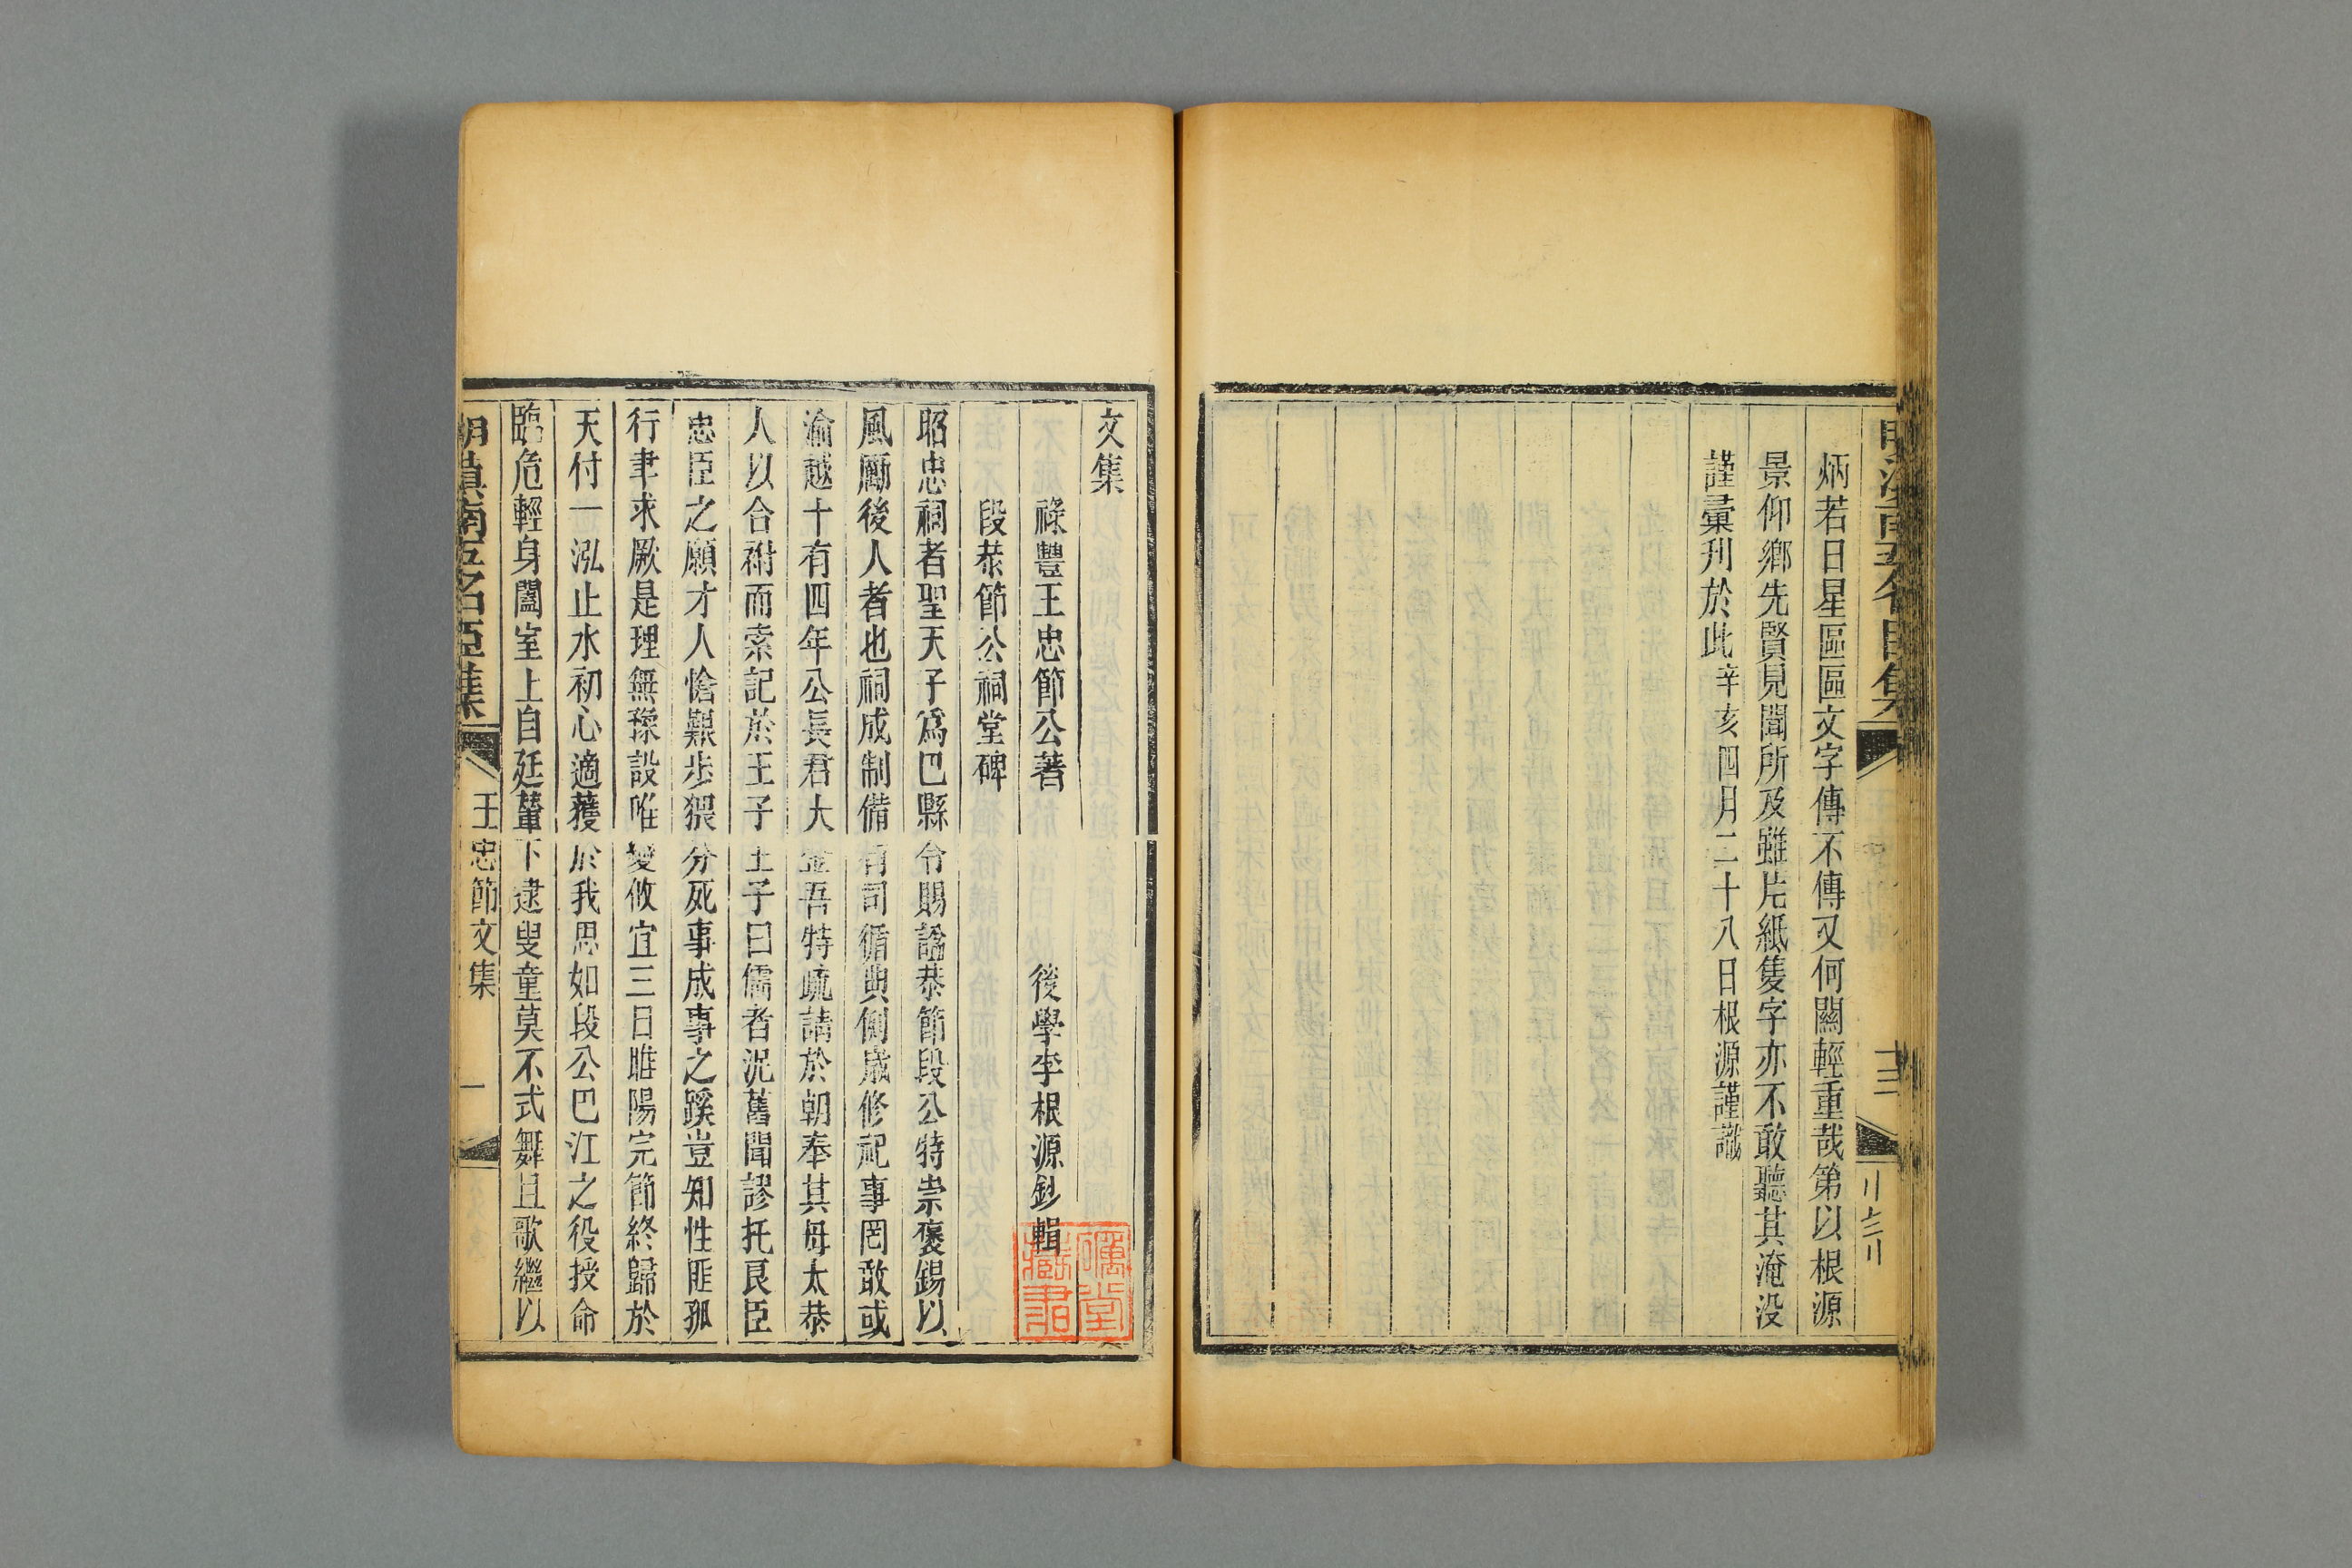 炳若日星區區文字傳不傳又何關輕重哉第以根源
景仰鄉先賢見聞所及雖片紙隻字亦不敢聽其淹没
謹彙刊於此辛亥四月二十八日根源謹識
文集
祿豐王忠節公著　後學李根源鈔輯
段恭節公祠堂碑
昭忠祠者聖天子爲巴縣令賜諡恭節段公特崇褒錫以
風勵後人者也祠成制備有司循典側歲修祀事罔敢或
渝越十有四年公長君大金吾特疏請於朝奉其母太恭
人以合祔而索記於王子王子曰儒者況舊聞謬托良臣
忠臣之願才人愴艱步猥分死事成事之蹊豈知性匪孤
行聿求厥是理無豫設唯變攸宜三日睢陽完節終歸於
天付一泓止水初心適獲於我思如段公巴江之役授命
臨危輕身闔室上自廷輦下逮叟童莫不式舞且歌繼以
明滇南五名臣集　王忠節文集　一
礪堂藏書